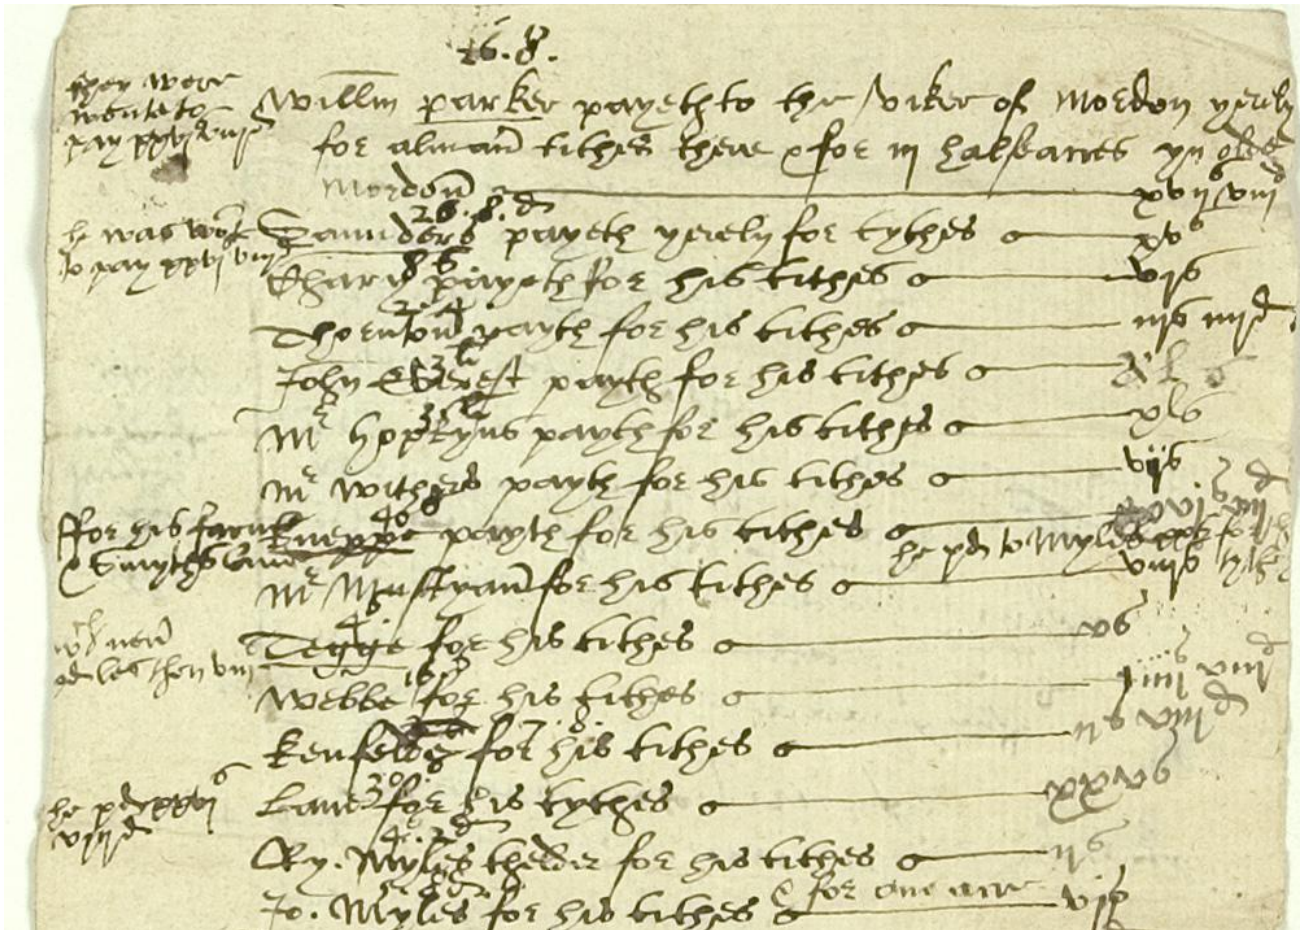 26.8.
they were
wonte to
pay xxvjs viijd
Willm parker payeth to the viker of Mordon yerely
for alman tithes there & for iij halfe acres yn olde
Mordon xvijs viijd
26.8.d
he was wont
to pay xxvjs viijd
Saunders payeth yerely for tythes xvs
payeth for his tithes vjs
Thornton payth for his tithes iijs iiijd
John Everest payth for his tithes xls
Mr Hopkyns payth for his tithes xls
Mr Withers payth for his tithes vijs
ffor his farme
& Smythes lande
40s
payth for his tithes
he pd to Myles for
Mr for his tithes viijs
Tegge for his tithes vs
les then viij
Webbe for his tithes iiijs viijd
for his tithes ijs viijd
he pd xxvjs
viijd
Lane for his tythes xxxvs
Ry. Myles thelder for his tithes ijs
Jo. Myles for his tithes & for one acre vjs